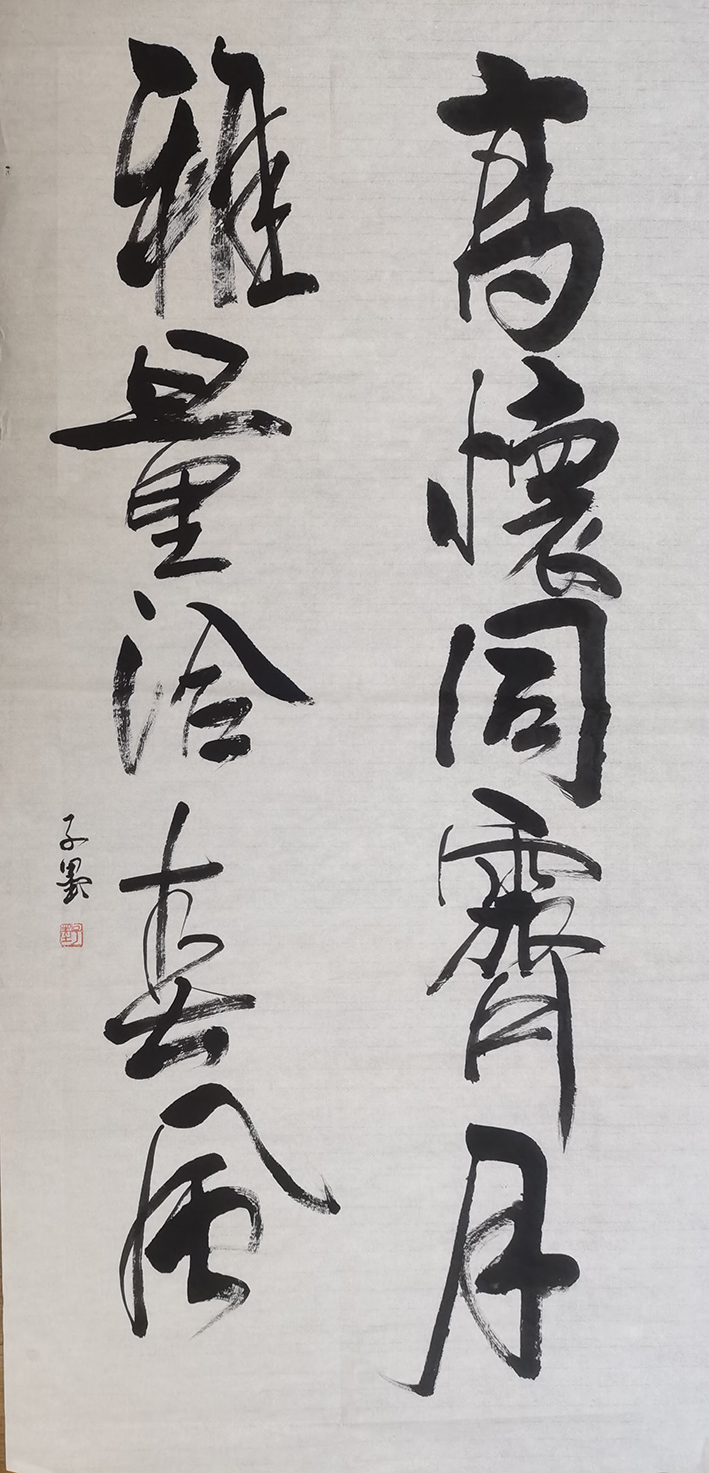 高懷同霽月
雅量洽春風
子墨